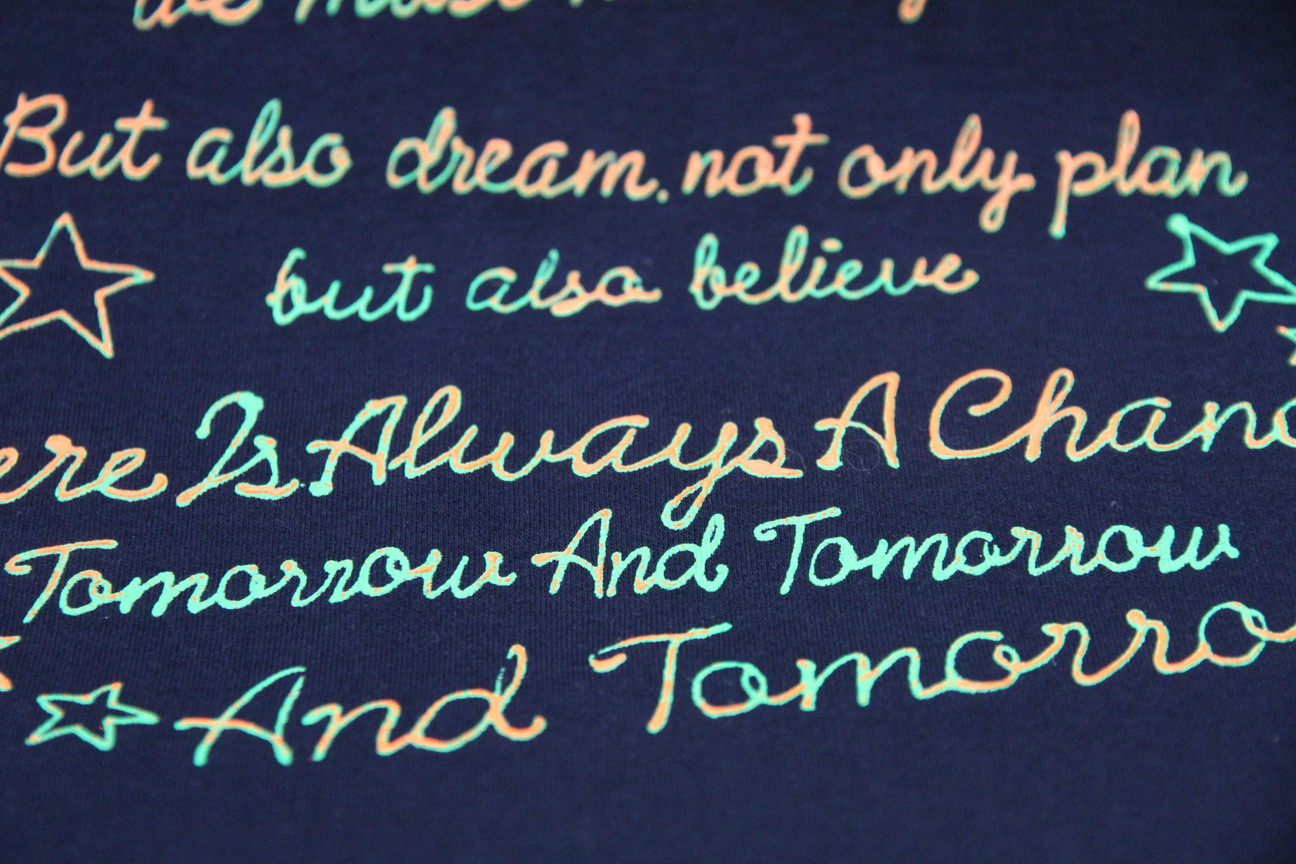 But also dream. not only plan
but also believe
ere Is Always A Chanc
Tomorrow And Tomorrow
And Tomorro